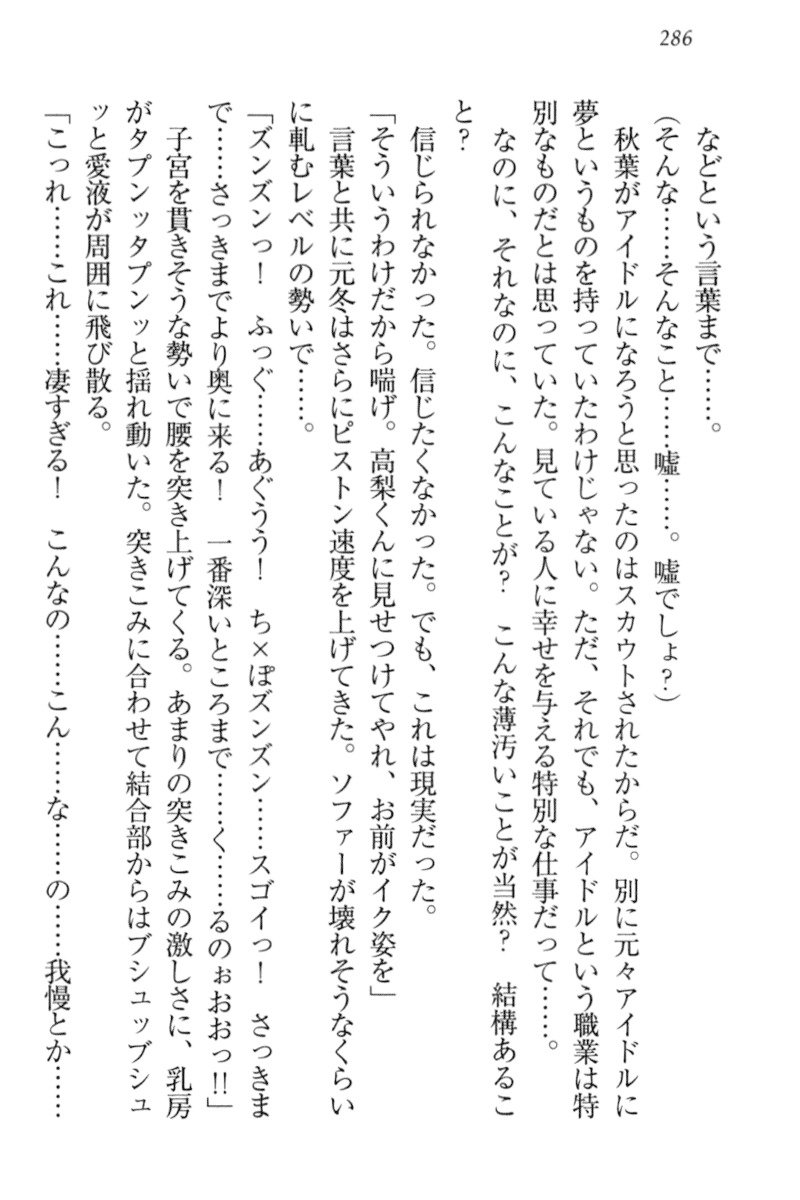 286
などという言葉まで……。
（そんな……そんなこと……嘘……。嘘でしょ？）
秋葉がアイドルになろうと思ったのはスカウトされたからだ。別に元々アイドルに
夢というものを持っていたわけじゃない。ただ、それでも、アイドルという職業は特
別なものだとは思っていた。見ている人に幸せを与える特別な仕事だって……。
なのに、それなのに、こんなことが？　こんな薄汚いことが当然？　結構あるこ
と？
信じられなかった。信じたくなかった。でも、これは現実だった。
「そういうわけだから喘げ。高梨くんに見せつけてやれ、お前がイク姿を」
言葉と共に元冬はさらにピストン速度を上げてきた。ソファーが壊れそうなくらい
に軋むレベルの勢いで……。
「ズンズンっ！　ふっぐ……あぐうう！　ち×ぽズンズン……スゴイっ！　さっきま
で……さっきまでより奥に来る！　一番深いところまで……く……るのぉおおっ!!」
子宮を貫きそうな勢いで腰を突き上げてくる。あまりの突きこみの激しさに、乳房
がタプンッタプンッと揺れ動いた。突きこみに合わせて結合部からはブシュッブシュ
ッと愛液が周囲に飛び散る。
「こっれ……これ……凄すぎる！　こんなの……こん……な……の……我慢とか……